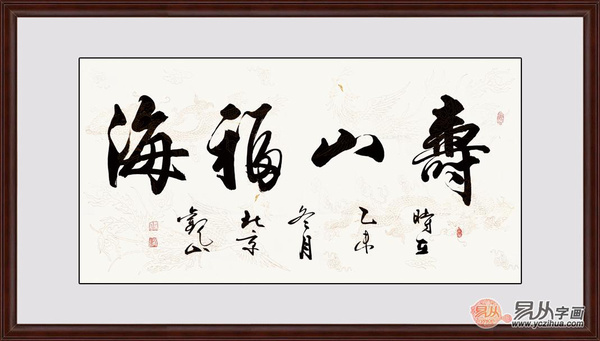 壽山福海
時在乙未冬月北京觀山
易从字画
www.yczihua.com